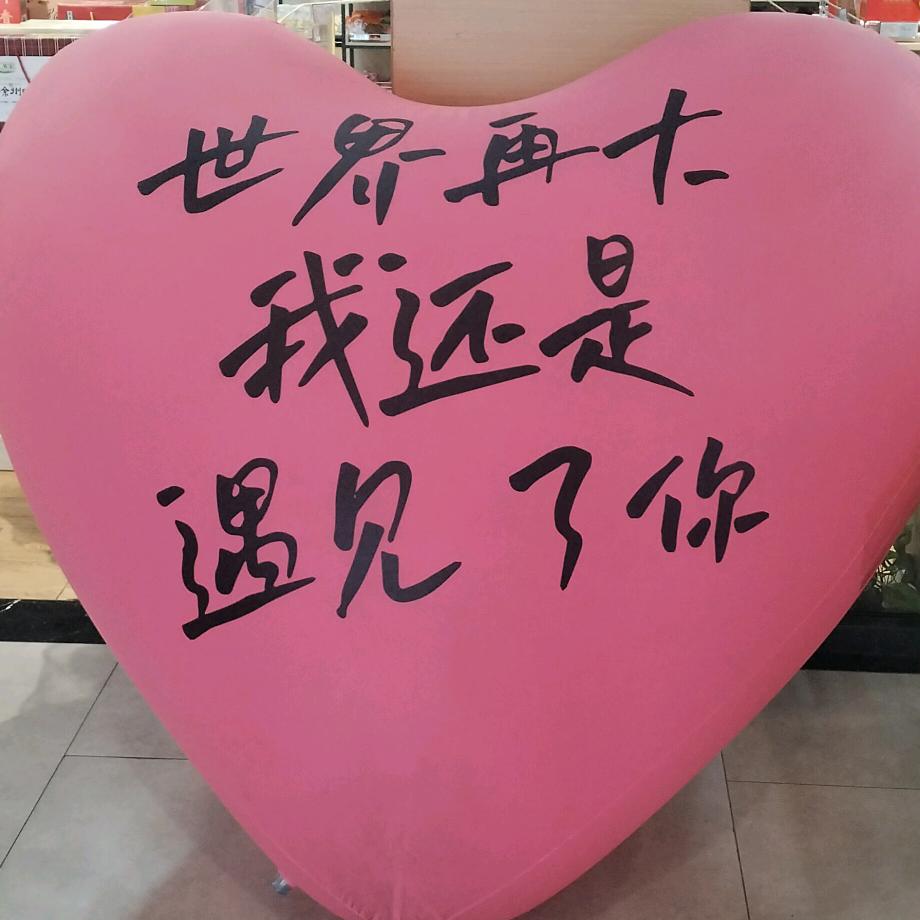 世界再大
我还是
遇见了你